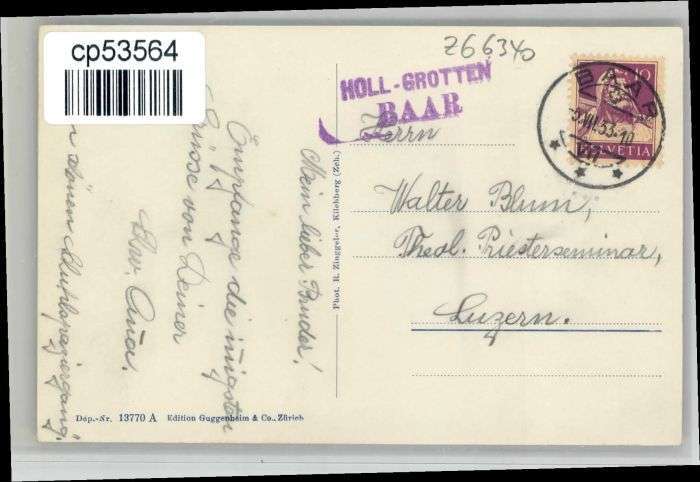 cp53564
Z6634o
HOLL-GROTTEN
BAAR
BAAR
10
HELVETIA
Herrn
Walter Blum,
Theol. Priesterseminar,
Luzern.
Mein lieber Bruder!
Empfange die innigsten
Grüsse von Deiner
Schw. Anna.
schönen Ausflugspaziergang.
Phot. R. Zinggeler, Kilchberg (Zch.)
Dep.-Nr. 13770 A Edition Guggenheim & Co., Zürich